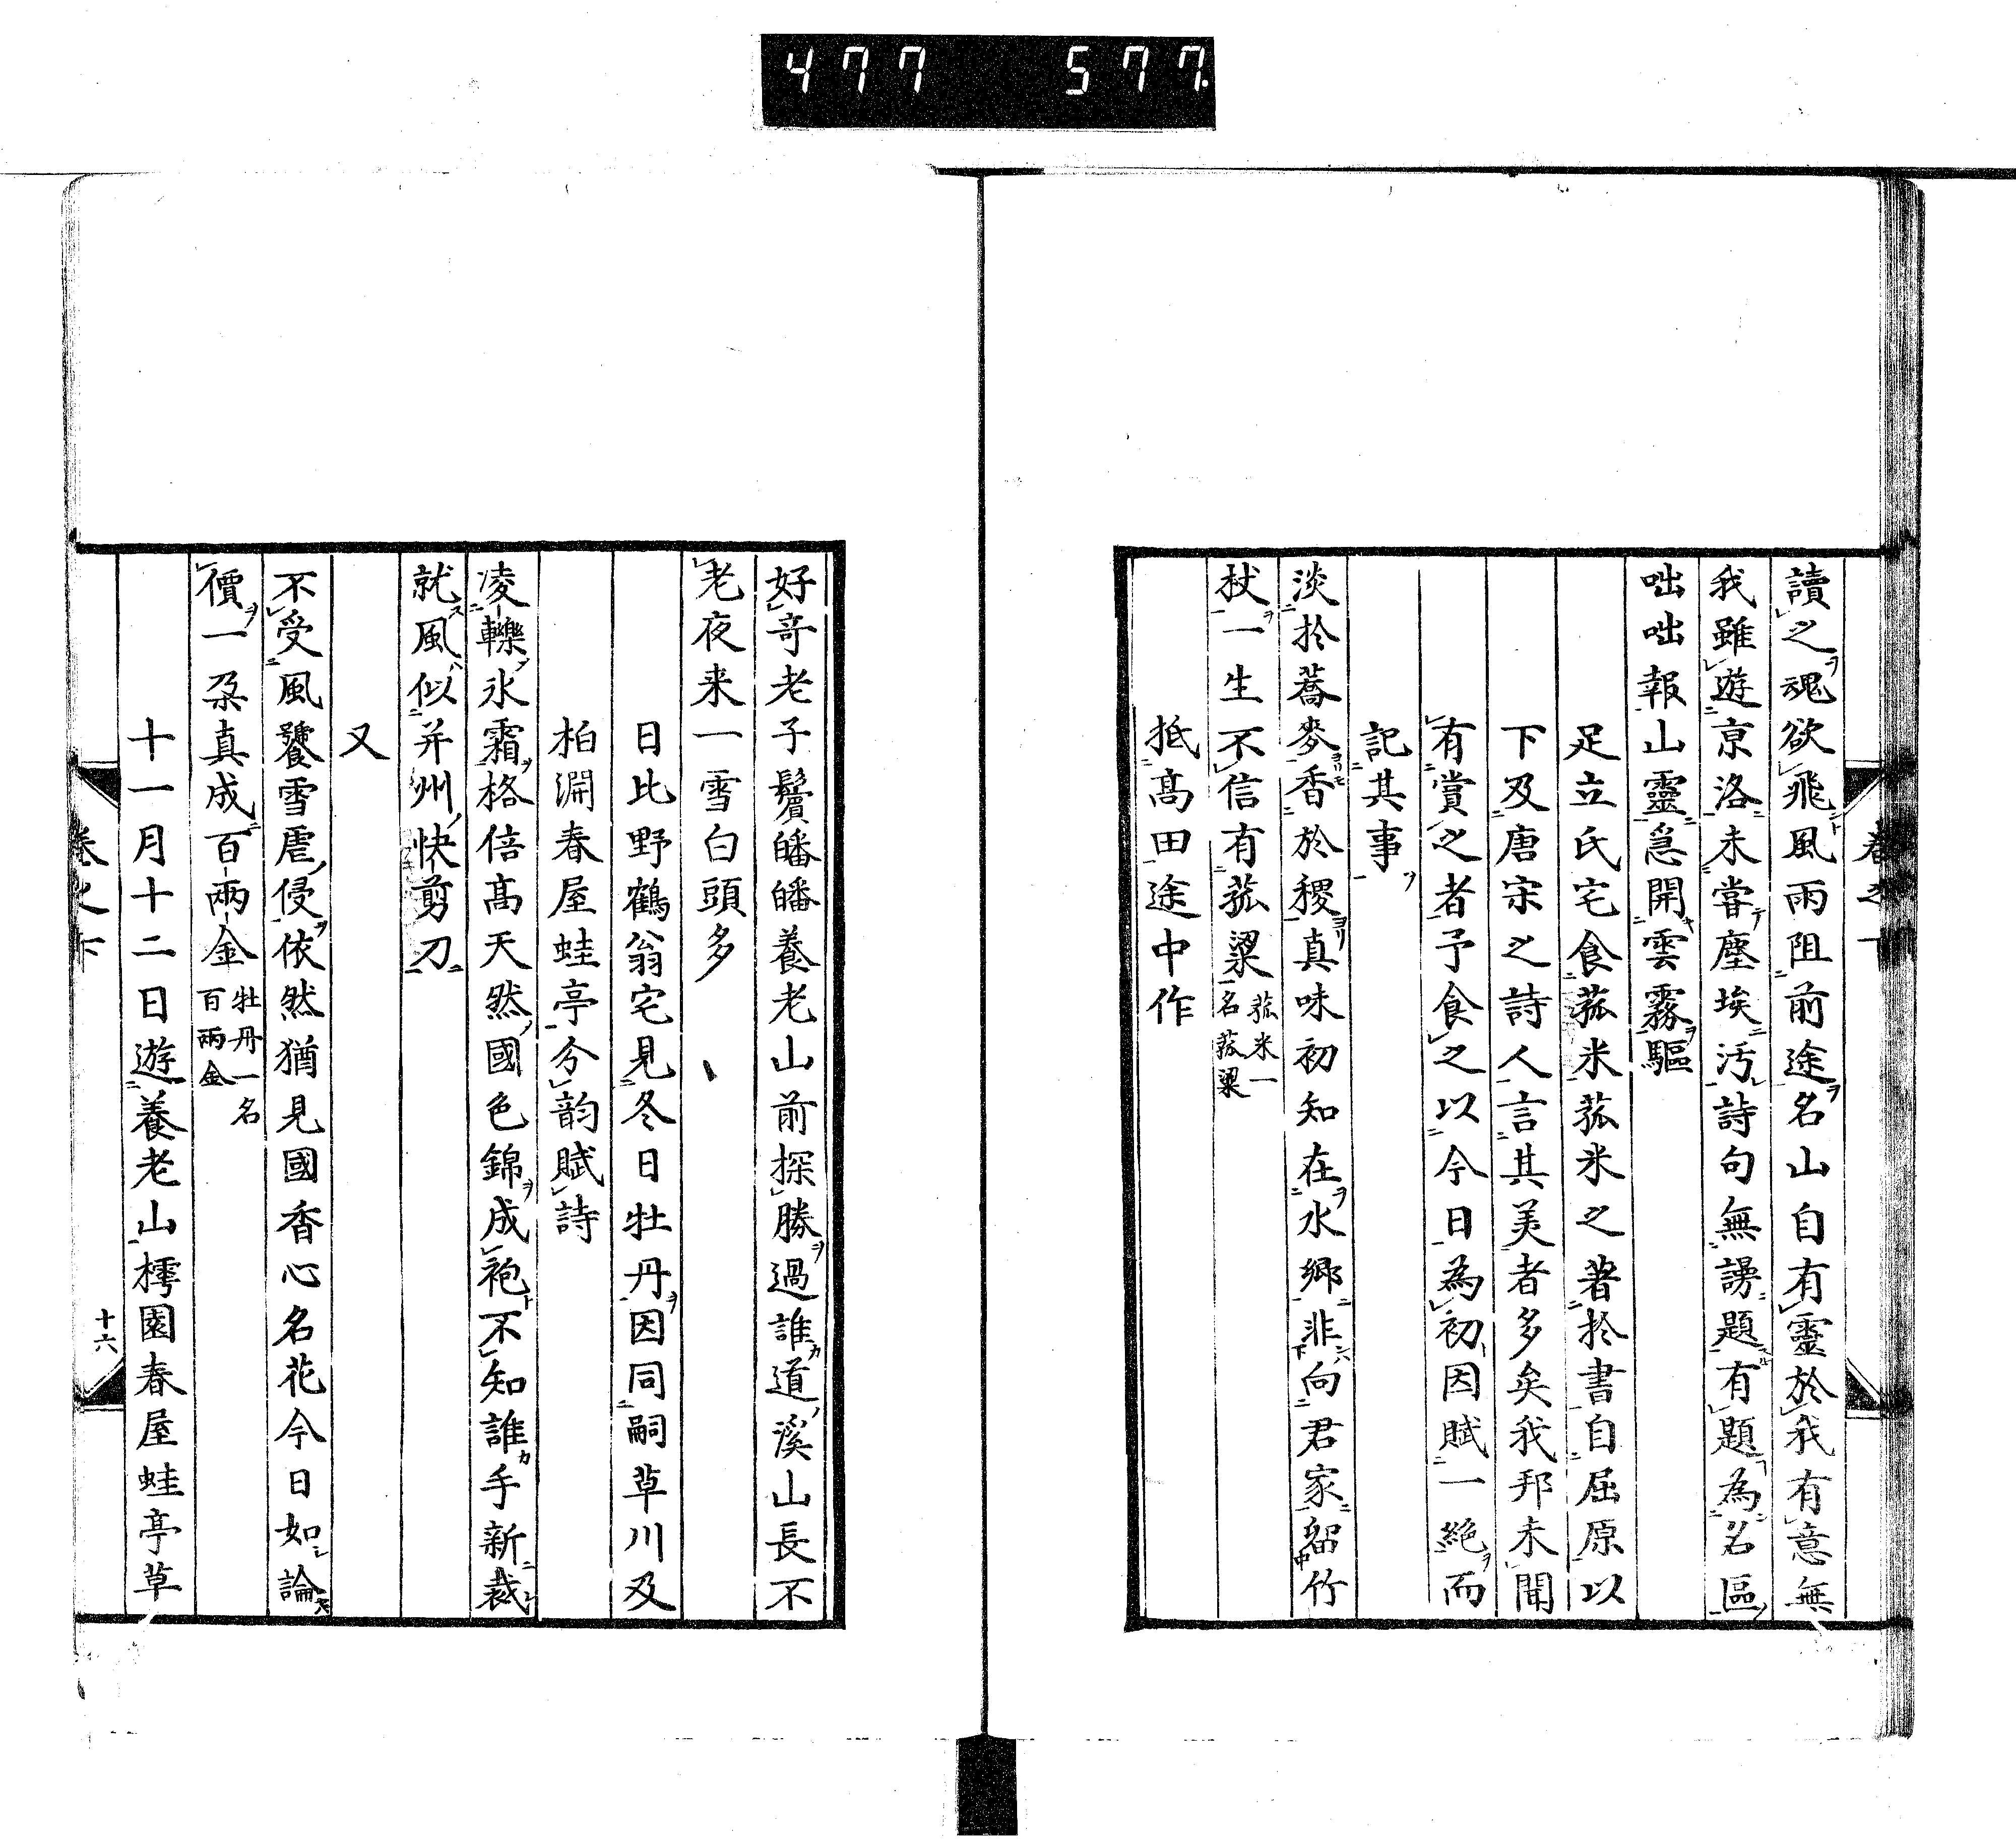 477 577.
讀之魂欲飛風雨阻前途名山自有靈於我有意無
我雖遊京洛未嘗塵埃汚詩句無謗題有題為名區
咄咄報山靈急開雲霧驅
足立氏宅食菰米菰米之著於書自屈原以
下及唐宋之詩人言其美者多矣我邦未聞
有賞之者予食之以今日為初因賦一絕而
記其事
淡於蕎麥香於稷真味初知在水鄉非向君家留竹
杖一生不信有菰粱 菰米一名菰粱
抵高田途中作
好奇老子鬢皤皤養老山前探勝過誰道溪山長不
老夜来一雪白頭多
日比野鶴翁宅見冬日牡丹因同嗣草川及
柏淵春屋蛙亭分韵賦詩
凌轢氷霜格倍高天然國色錦成袍不知誰手新裁
就風似并州快剪刀
又
不受風饕雪虐侵依然猶見國香心名花今日如論
價一朶真成百兩金 牡丹一名百兩金
十一月十二日遊養老山樗園春屋蛙亭草
卷之下
十六